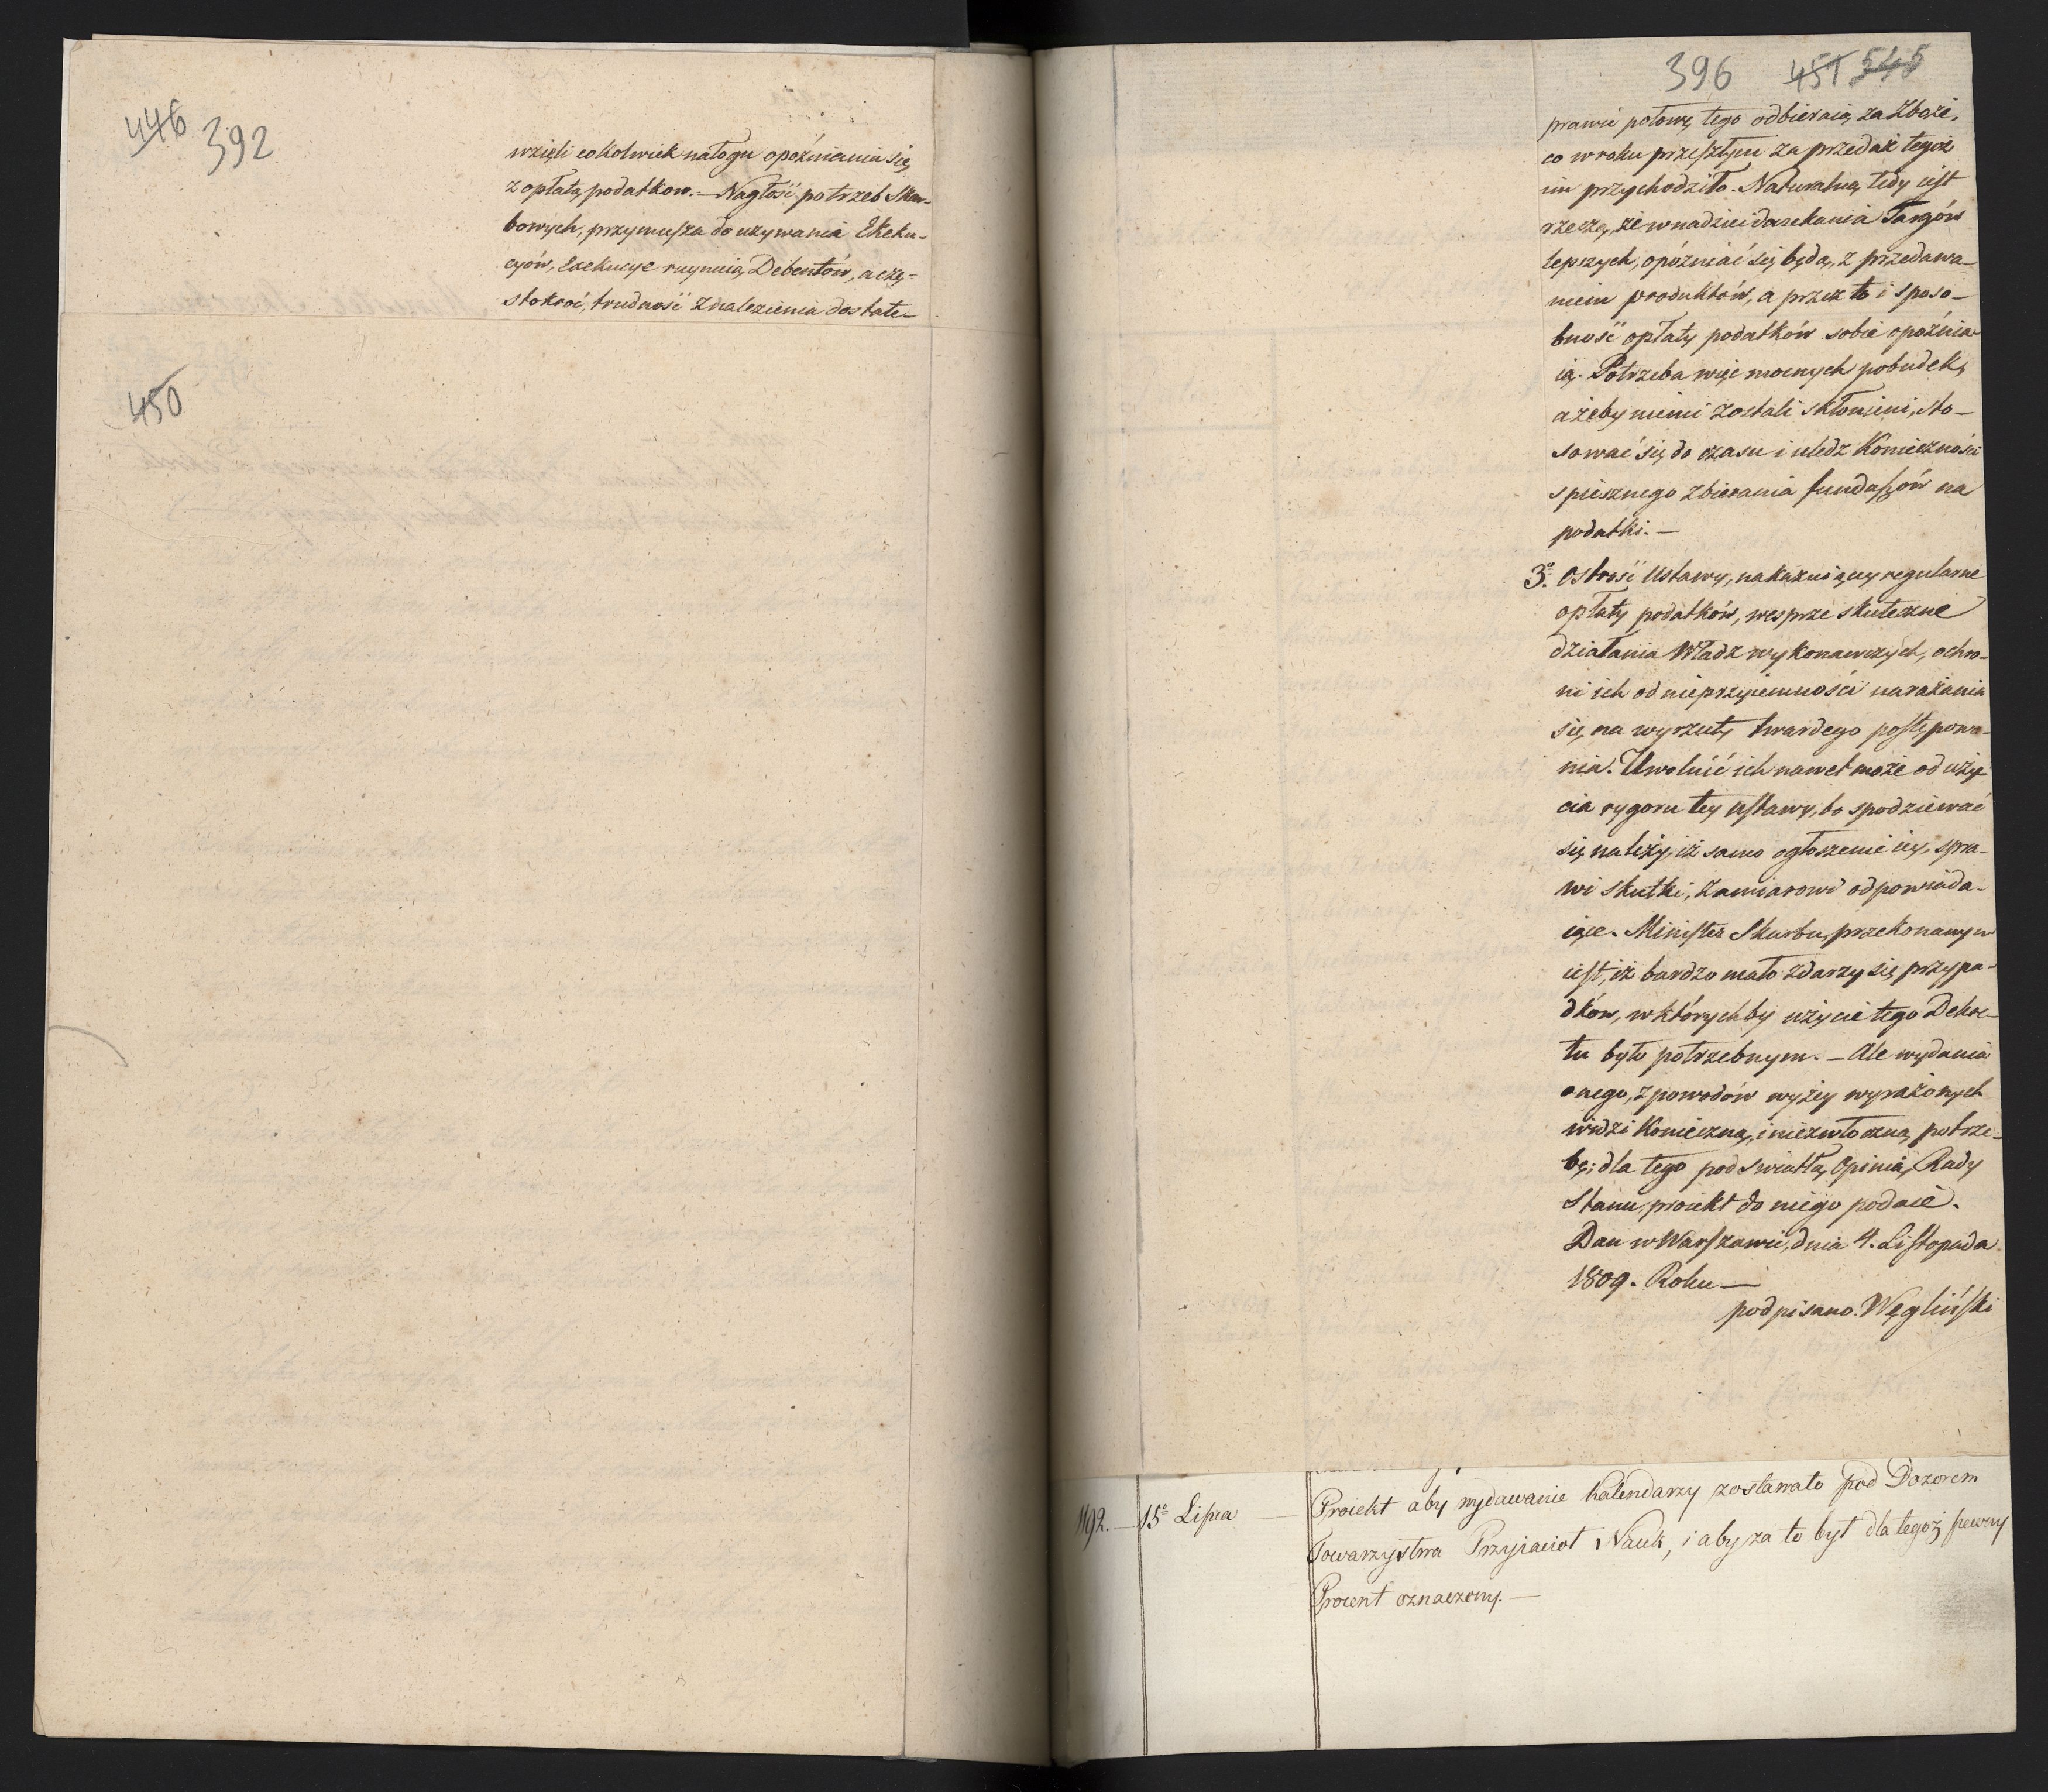 446 392
wzięli cokolwiek nałogu opóźniania się
z opłatą podatkow. — Nagłość potrzeb Skar-
bowych, przymusza do używania Exeku-
cyów, Exekucye ruynuią Debentów, a czę-
stokroć, trudność znalezienia dostate-
450
396 451 545
prawie połowę tego odbieraią za Zboże,
co w roku przeszłym za przedaż tegoż
im przychodziło. Naturalną tedy iest
rzeczą, że w nadziei doczekania Targów
lepszych, opóźniać się będą, z przedawa-
niem produktów, a przez to i sposo-
bność opłaty podatków sobie opóźnia-
ią. Potrzeba więc mocnych pobudek,
ażeby niemi zostali skłonieni, sto-
sować się do czasu i uledz Konieczności
spiesznego zbierania funduszów na
podatki. —
3o. Ostrość Ustawy, nakazuiący regularne
opłaty podatków, wesprze skutecznie
działania Władz wykonawczych, ochro-
ni ich od nieprzyiemności narażania
się, na wyrzuty twardego postępowa-
nia. Uwolnić ich nawet może od uży-
cia rygoru tey ustawy, bo spodziewać
się należy, iż samo ogłoszenie iey, spra-
wi skutki, zamiarowi odpowiada-
iące. Minister Skarbu, przekonanym
iest, iż bardzo mało zdarzy się przypa-
dków, w którychby użycie tego Dekre-
tu było potrzebnym. — Ale wydania
onego, z powodów wyżey wyrażonych
widzi Konieczną, i niezwłoczną potrze-
bę; dla tego pod swiatłą Opinią Rady
Stanu, proiekt do niego podaie.
Dan w Warszawie, dnia 4. Listopada
1809. Roku —
podpisano. Węgliński
1192. — 15o Lipca — Proiekt aby wydawanie kalendarzy zostawało pod Dozorem
Towarzystwa Przyiaciół Nauk, i aby za to był dla tegoż pewny
Procent oznaczony. —